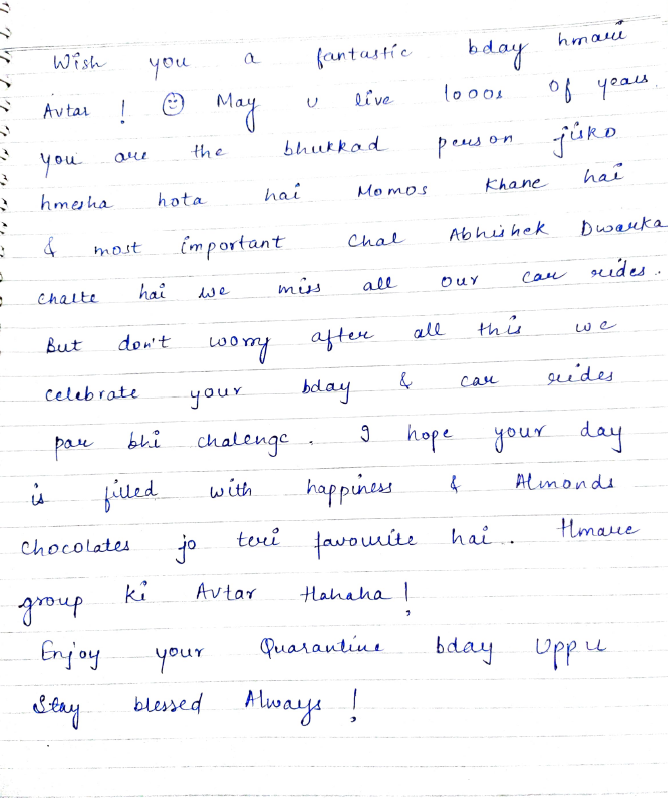 Wish you a fantastic bday hmari
Avtar ! ☺ May u live 1000s of years.
You are the bhukkad person jisko
hmesha hota hai Momos Khane hai
& most important Chal Abhishek Dwarka
Chalte hai we miss all our car rides.
But don't worry after all this we
celebrate your bday & car rides
par bhi chalenge. I hope your day
is filled with happiness & Almonds
Chocolates jo teri favourite hai.. Hmare
group ki Avtar Hahaha !
Enjoy your Quarantine bday Uppu
Stay blessed Always !